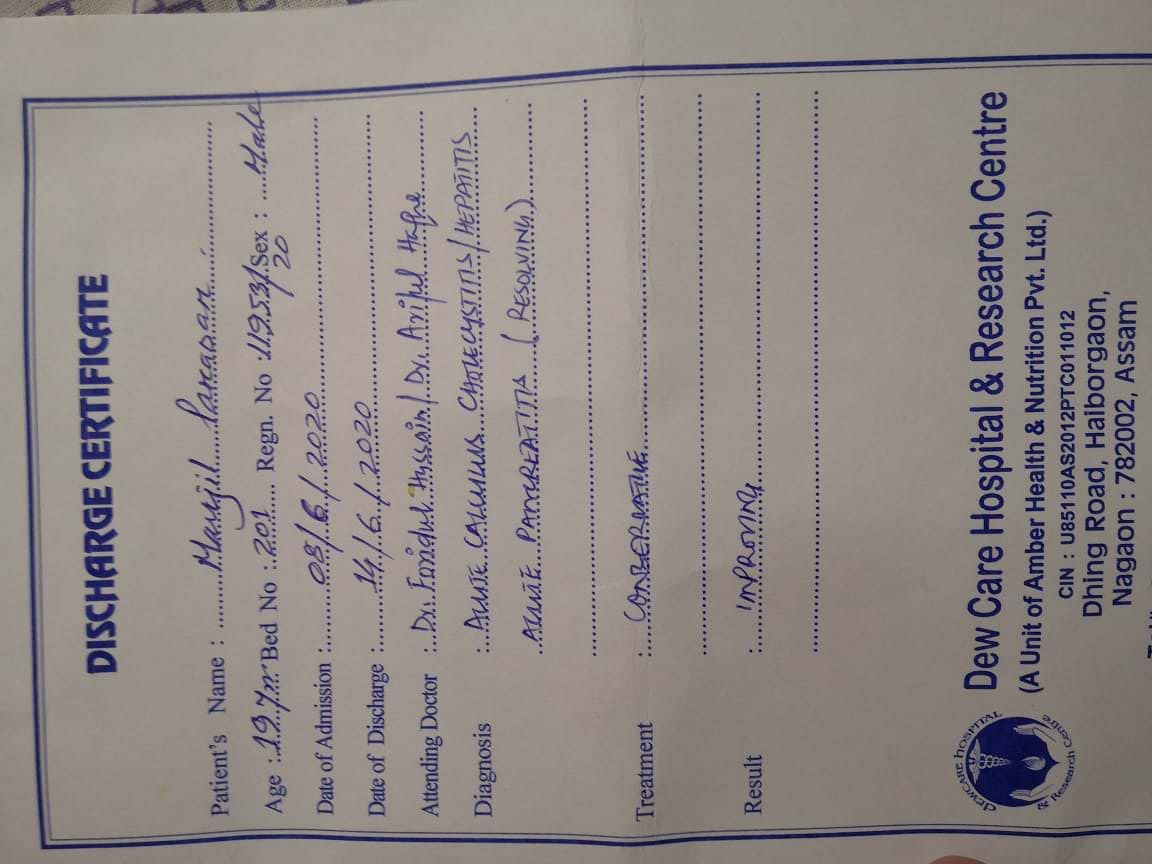 DISCHARGE CERTIFICATE
Patient's Name : Manjil
Age : 19 Bed No : 201 Regn. No 11953/20 Sex : Male
Date of Admission : 08/6/2020
Date of Discharge : 14/6/2020
Attending Doctor : Dr. Faridul Hussain / Dr. Ariful Haque
Diagnosis : ACUTE CALCULUS CHOLECYSTITIS / HEPATITIS
ACUTE PANCREATITIS (RESOLVING)
Treatment : CONSERVATIVE
Result : IMPROVING
DEWCARE HOSPITAL & Research Centre
Dew Care Hospital & Research Centre
(A Unit of Amber Health & Nutrition Pvt. Ltd.)
CIN : U85110AS2012PTC011012
Dhing Road, Haiborgaon,
Nagaon : 782002, Assam